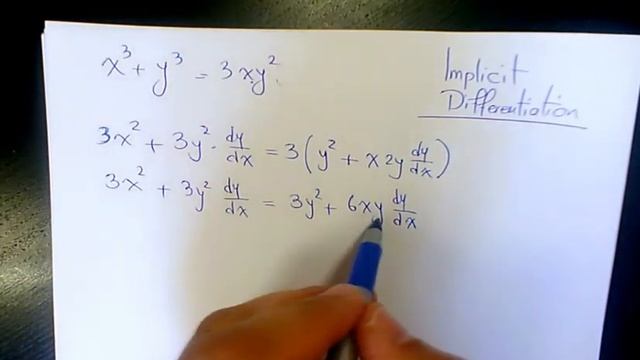 x³ + y³ = 3xy²
Implicit
Differentiation
3x² + 3y² · dy/dx = 3(y² + x 2y dy/dx)
3x² + 3y² dy/dx = 3y² + 6xy dy/dx